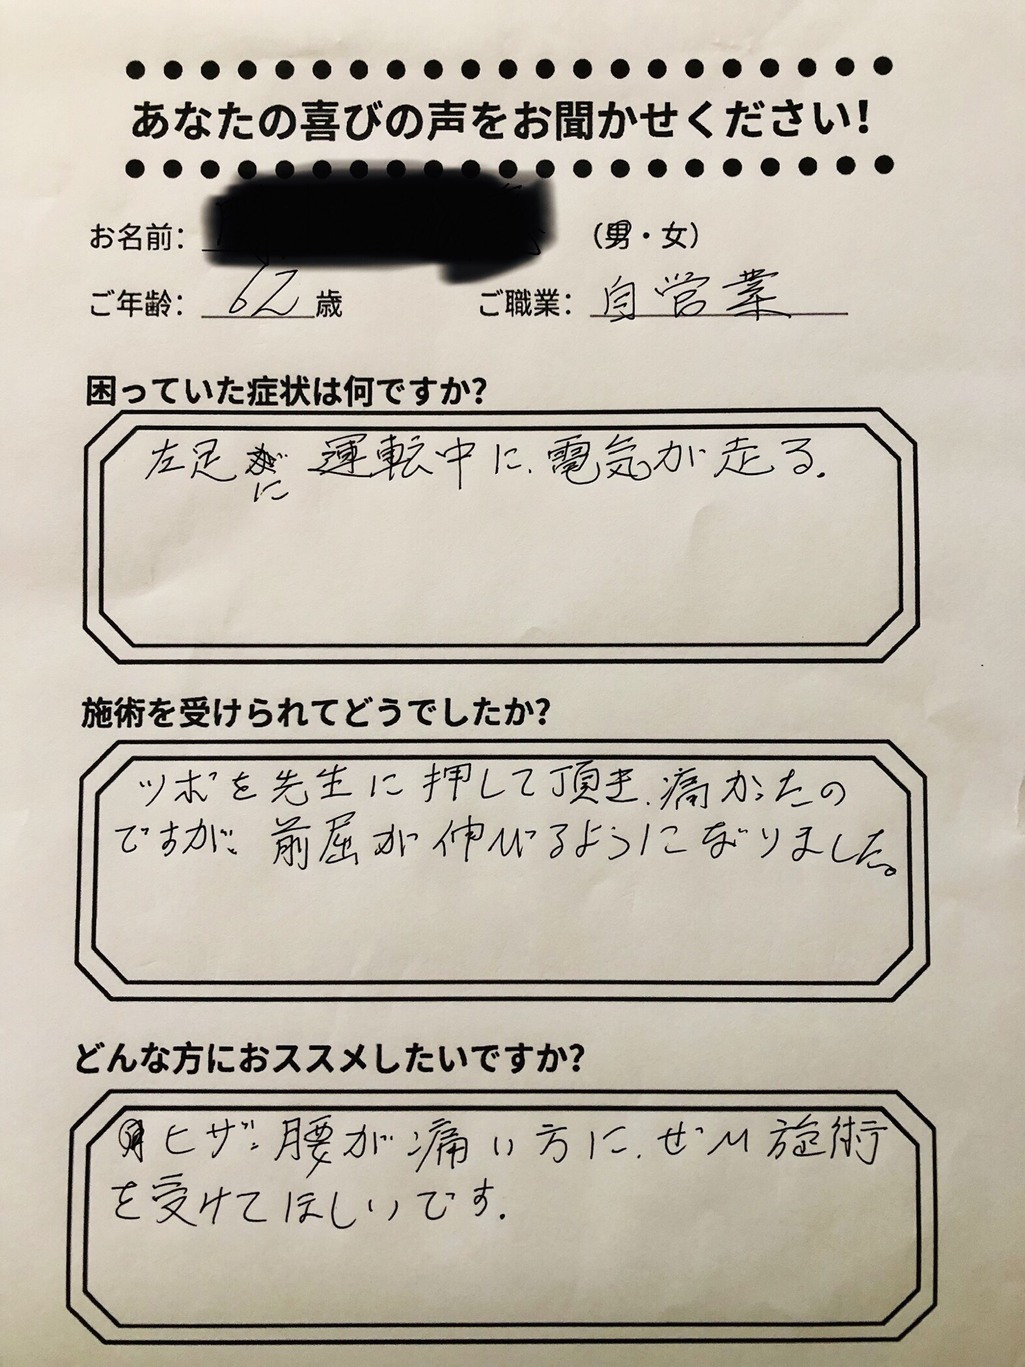 あなたの喜びの声をお聞かせください!
お名前: (男・女)
ご年齢: 62歳 ご職業: 自営業
困っていた症状は何ですか?
左足に運転中に、電気が走る.
施術を受けられてどうでしたか?
ツボを先生に押して頂き、痛かったの
ですが、前屈が伸びるようになりました。
どんな方におススメしたいですか?
ヒザ、腰が痛い方に、ぜひ施術
を受けてほしいです.